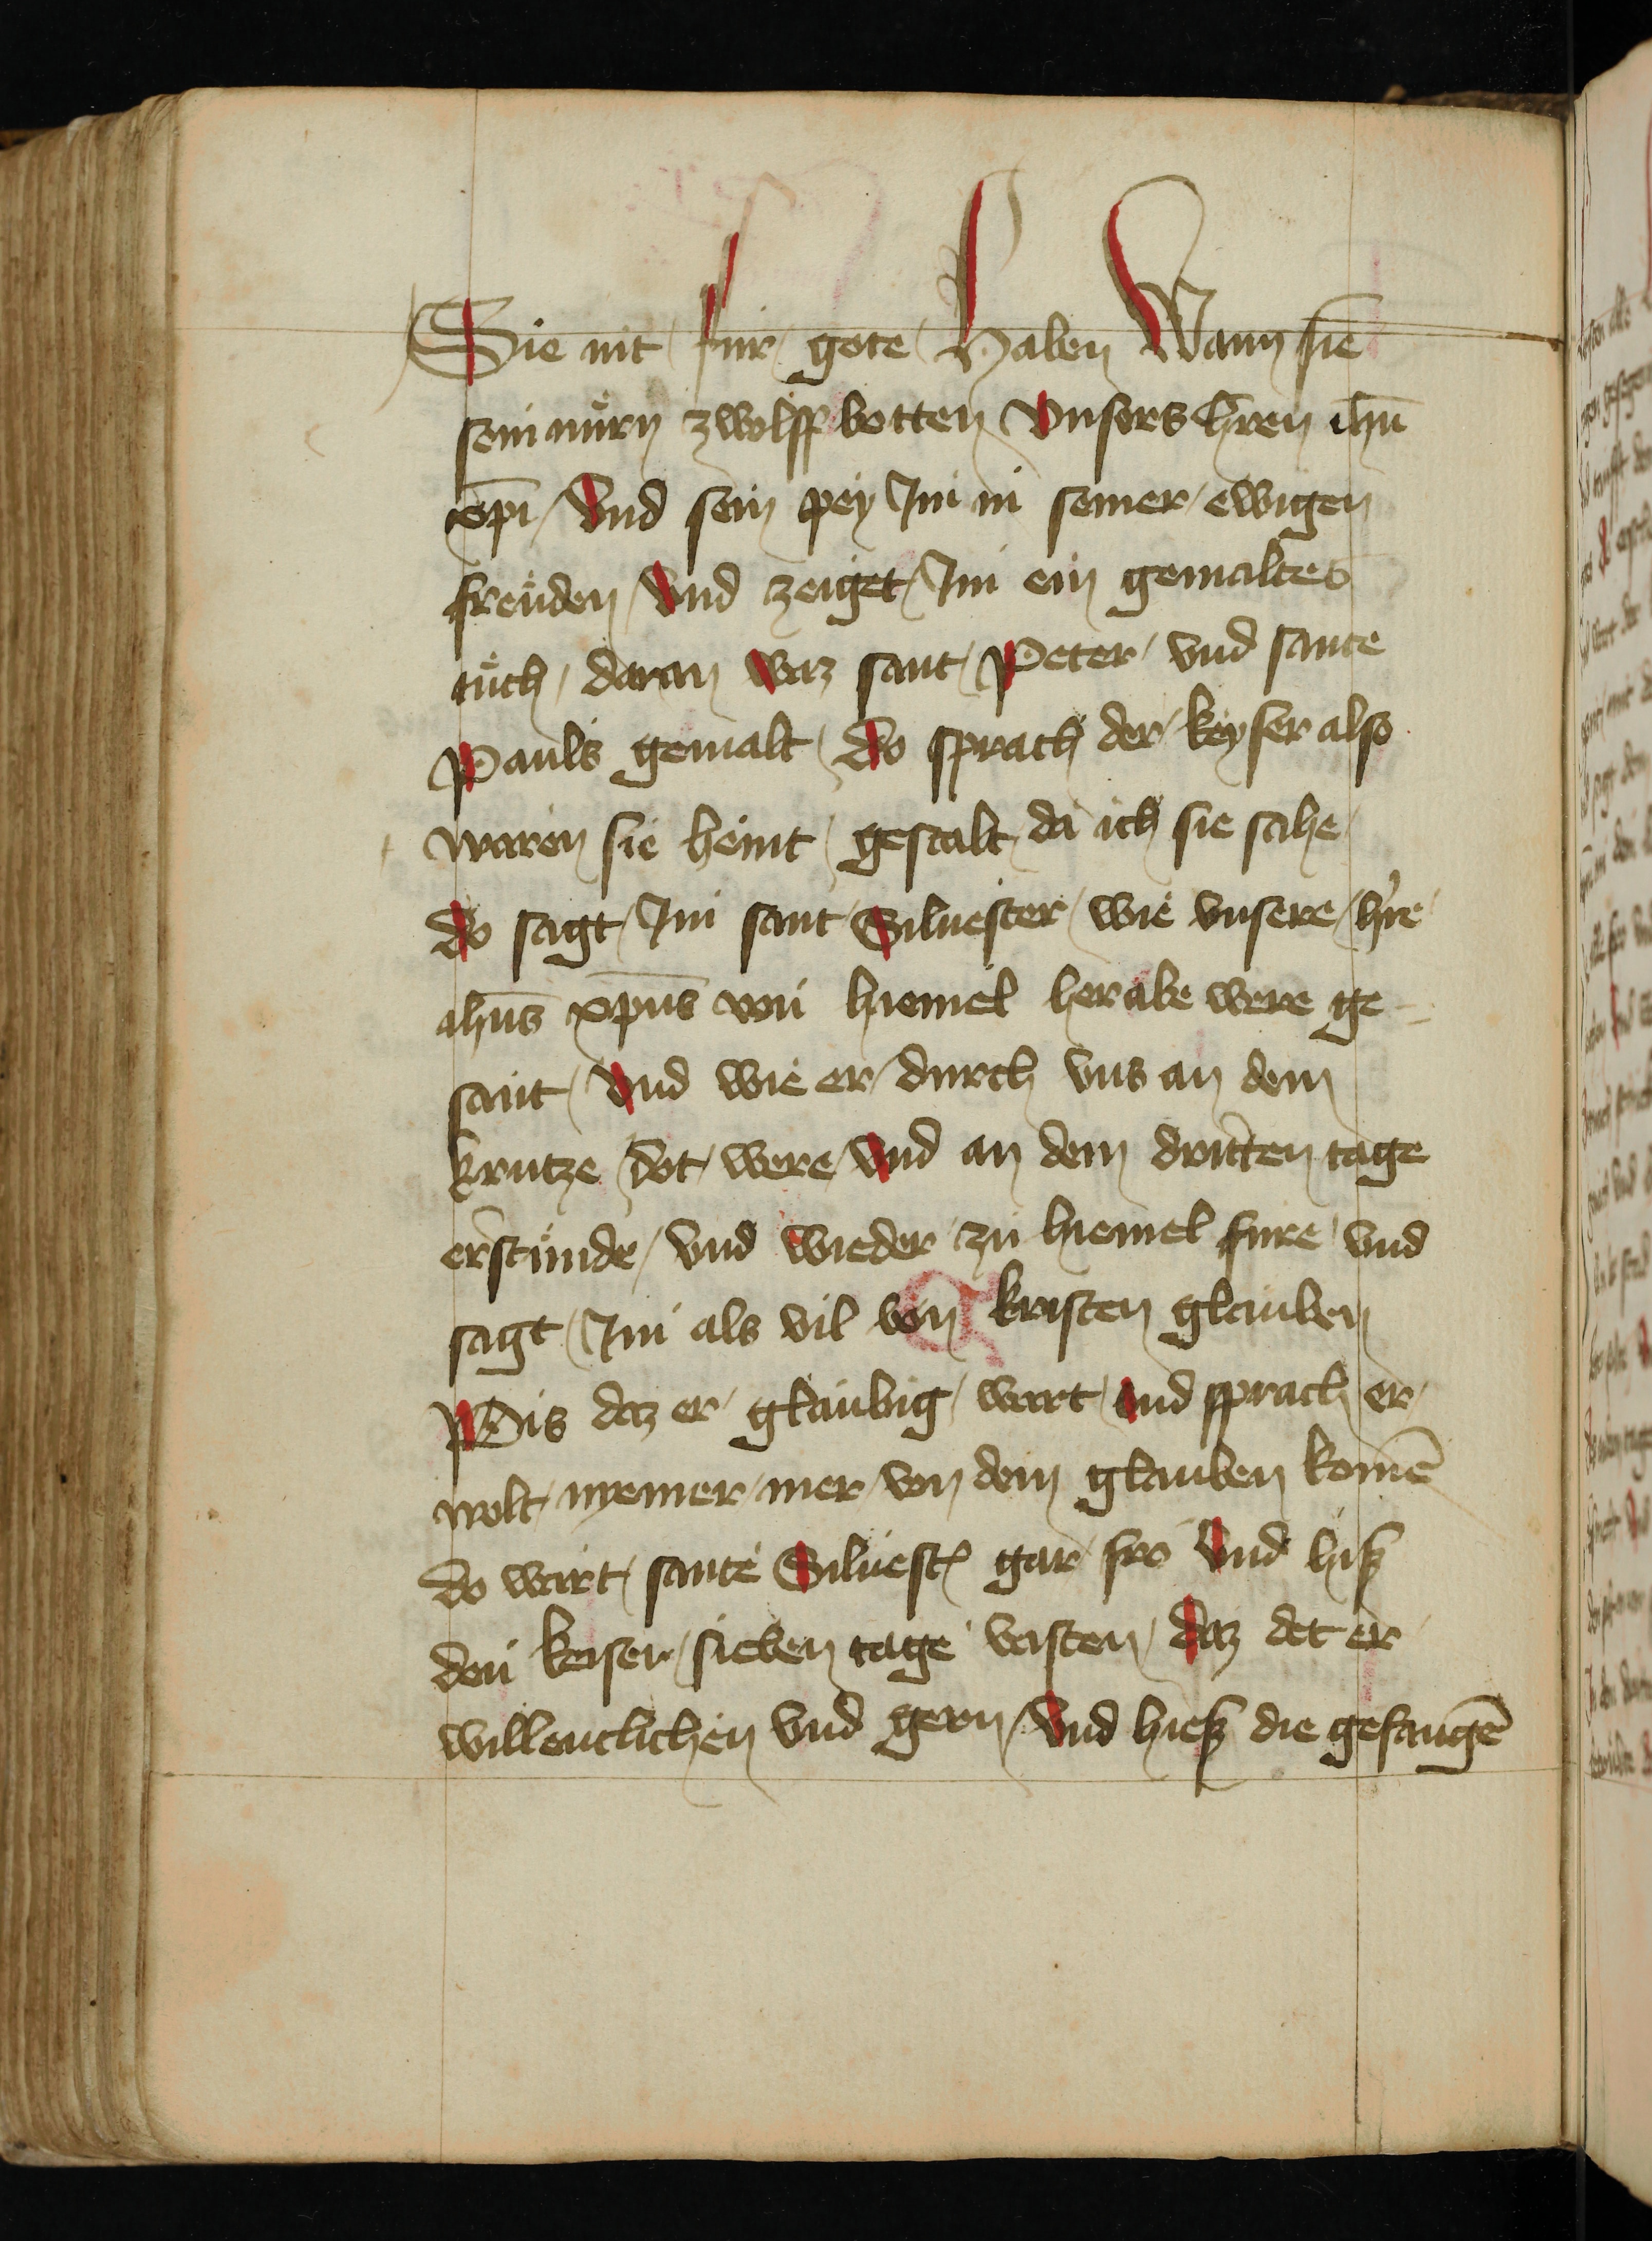 Sie nit fur gote Haben Wann sie
sein nuͤrn zwolff botten vnsers hr̄en ihū
xp̄i vnd sein pey Im in seiner ewigen
freuͤden vnd zeiget Im ein gemaltes
tuͤch daran waz sant Peter vnd sante
Pauls gemalt do sprach der keyser also
waren sie heint gestalt da ich sie sahe
do sagt Im sant Siluester wie vnsere hre
ihūs xp̄us von hiemel herabe were ge-
sant vnd wie er durch vns an dem
krutze dot were vnd an dem dritten tage
erstuͤnde vnd wieder zu hiemel fure vnd
sagt Im als vil von kristen glauben
Pis daz er glaubig wart vnd sprach er
wolt nyemer mer von dem glauben komē
do wart sante Siluest̓ gar fro vnd hiß
den keiser sieben tage vasten daz det er
willentlichen vnd gern vnd hieß die gefangē